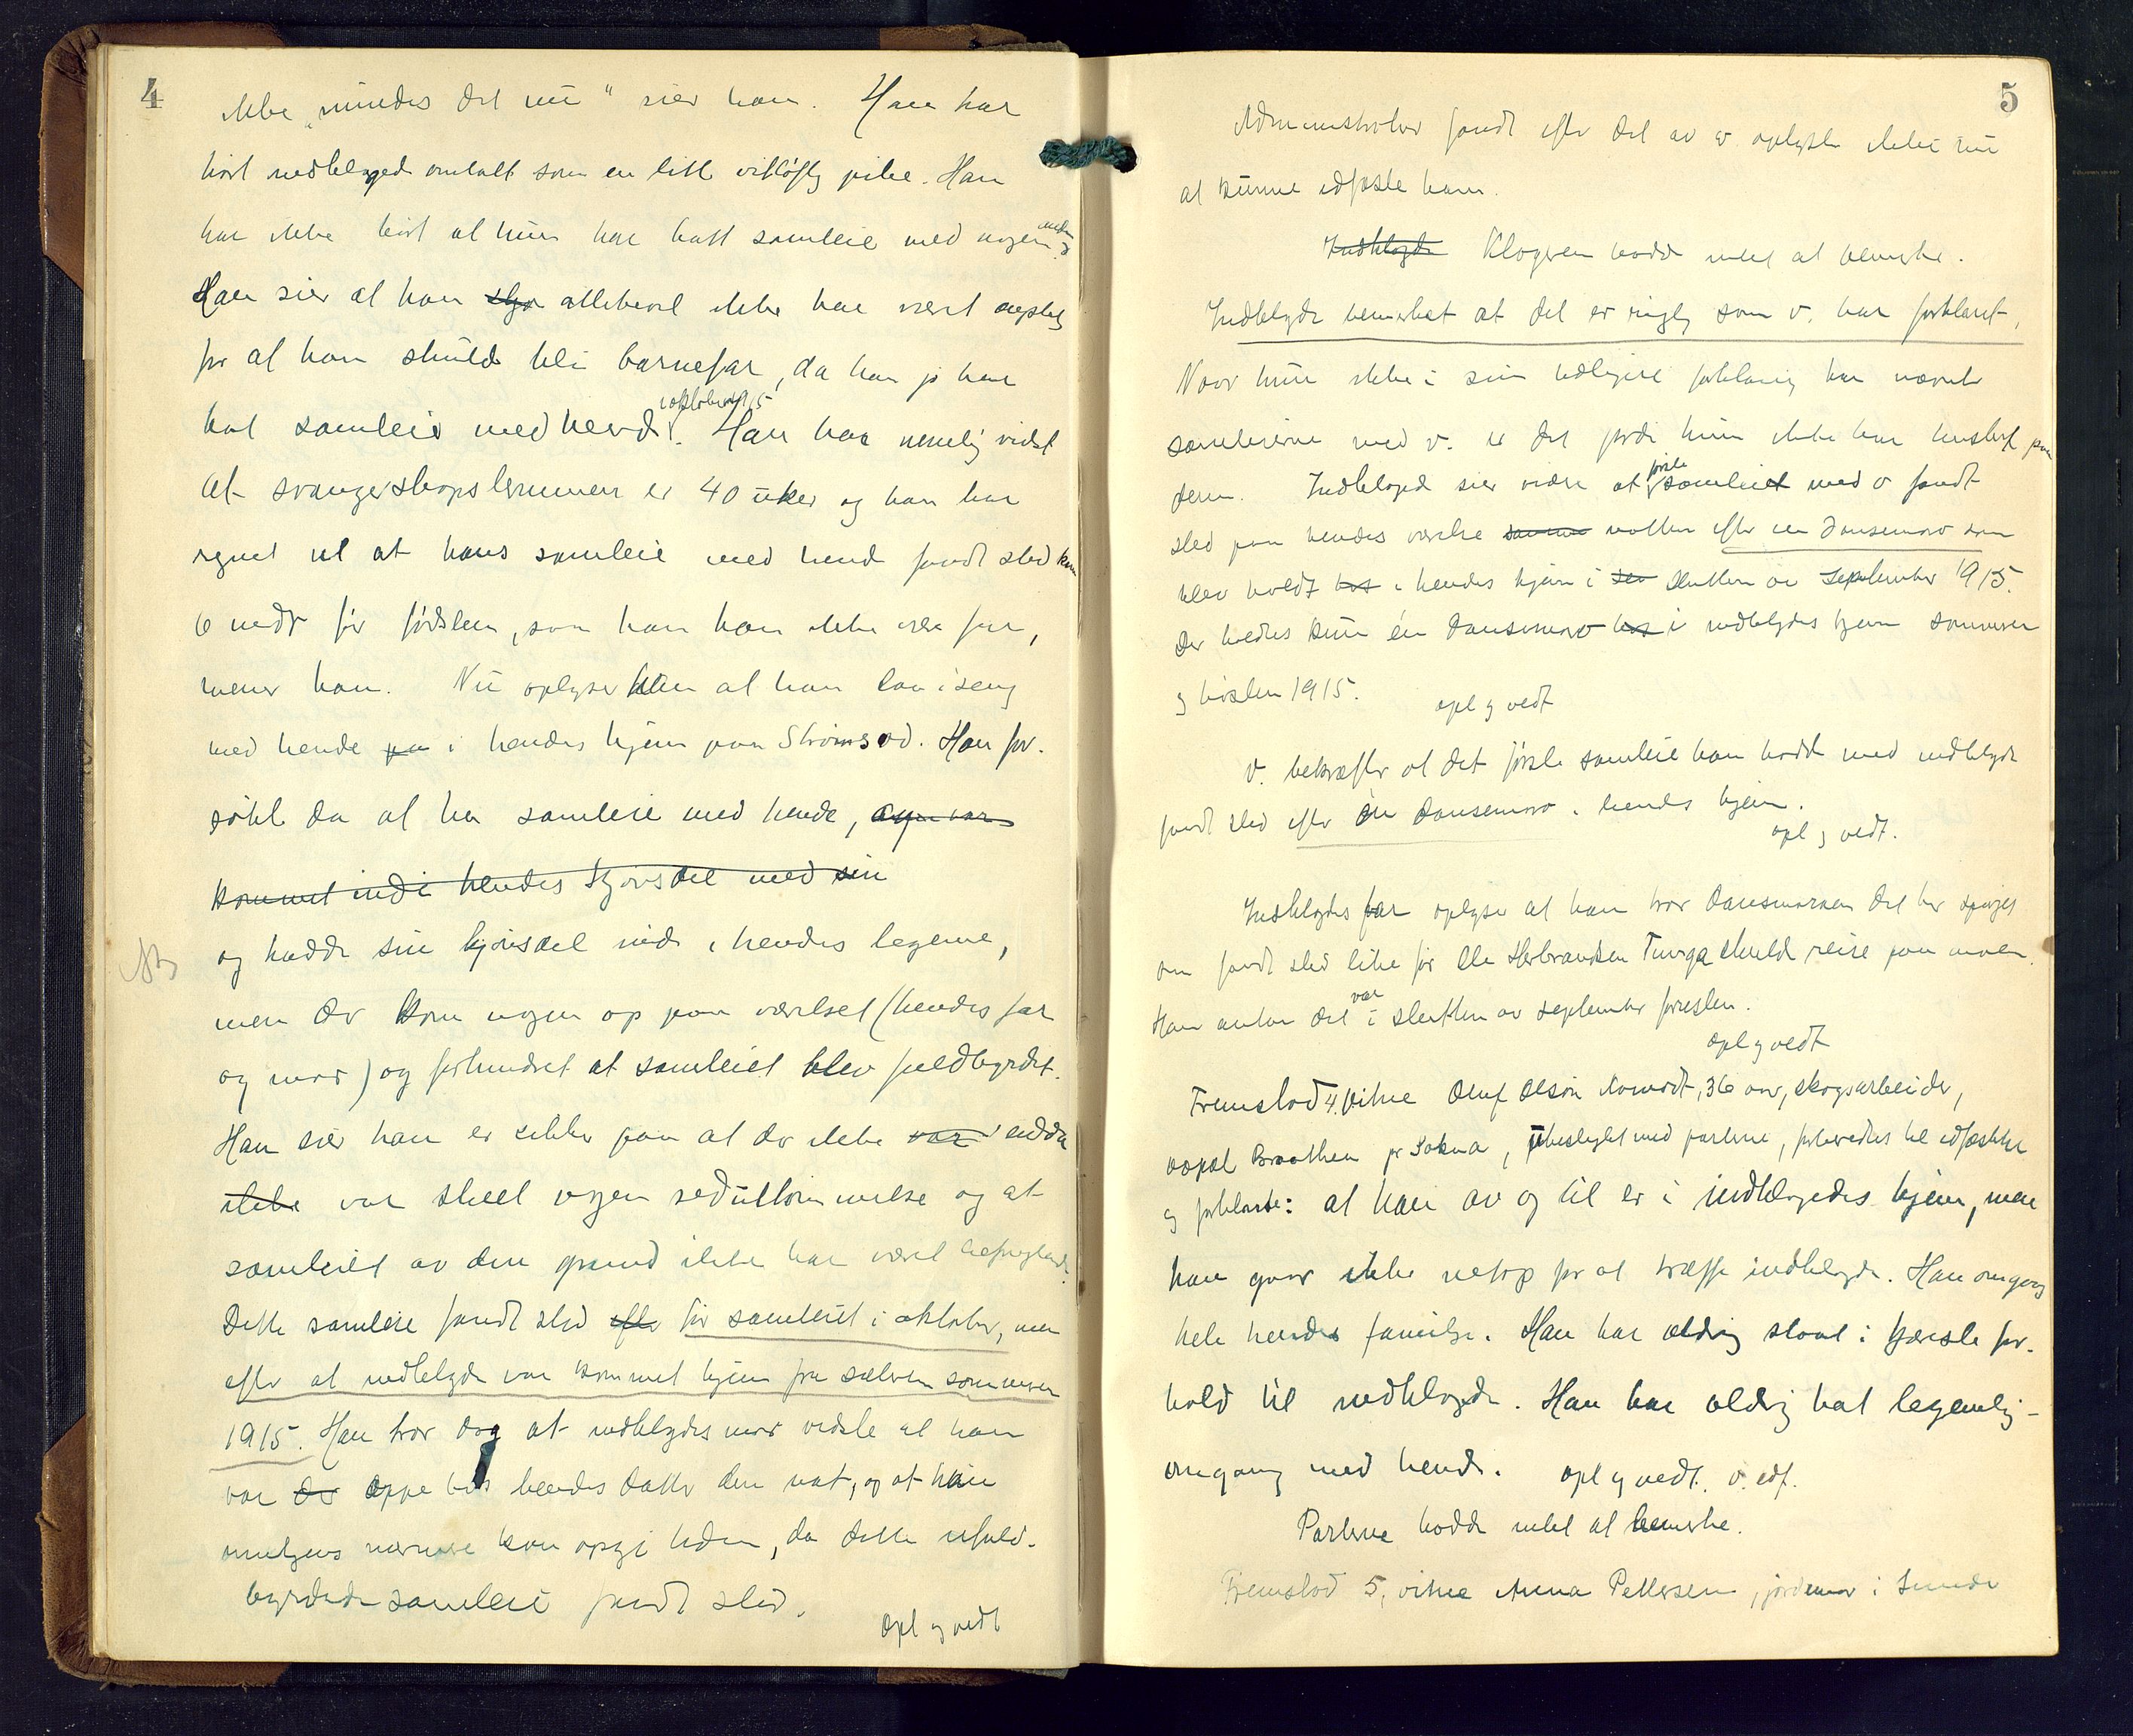 4
ikke "mindes det nu" sier han. Han har
hørt indklagede omtalt som en litt vitløftig pike. Han
har ikke hørt at hun har hatt samleie med nogen anden
Han sier at han allikevel ikke har været ængstelig
for at han skulde bli barnefar, da han jo har
hat samleie med hende i oktober 1915. Han har nemlig vidst
at svangerskapsterminen er 40 uker og han har
regnet ut at hans samleie med hende fandt sted kun
6 mdr før fødslen, saa han kan ikke være far,
mener han. Nu oplyser han at han laa i seng
med hende i hendes hjem paa Strømsod. Han for-
søkte da at ha samleie med hende, og var
kommet ind i hendes kjønsdel med sin
og hadde sin kjønsdel inde i hendes legeme,
NB
men der kom nogen op paa værelset (hendes far
og mor) og forhindret at samleiet blev fuldbyrdet.
Han sier han er sikker paa at der ikke var endda
ikke var skeet nogen sæduttømmelse og at
samleiet av den grund ikke har været befrugtende.
Dette samleie fandt sted efter før samleiet i oktober, men
efter at indklagede var kommet hjem fra sæteren sommeren
1915. Han tror dog at indklagedes mor vidste at han
var der oppe hos hendes datter den nat, og at hun
muligens nærmere kan opgi tiden, da dette ufuld-
byrdede samleie fandt sted.
Opl og vedt
5
Administrator fandt efter det av v. oplyste ikke nu
at kunne edfæste ham.
Indklagede Klageren hadde intet at bemerke.
Indklagede bemerket at det er riktig som v. har forklaret.
Naar hun ikke i sin tidligere forklaring har nævnt
samleierne med v. er det fordi hun ikke har husket paa
dem. Indklagede sier videre at første samleiet med v fandt
sted paa hendes værelse samme natten efter en dansemoro som
blev holdt hos i hendes hjem i slutten av September 1915.
Der holdtes kun én dansemoro hos i indklagedes hjem sommeren
og høsten 1915.
opl og vedt
V. bekræfter at det første samleie han hadde med indklagede
fandt sted efter en dansemoro i hendes hjem.
opl og vedt.
Indklagedes far oplyser at han tror dansemoroen det her spørges
om fandt sted like før Ole Herbrandsen Turga skulde reise paa moen.
Han antar det var i slutten av september forresten.
opl og vedt
Fremstod 4. vitne Oluf Olsøn, 36 aar, skogsarbeider,
opal Braathen pr Sokna, ubeslegtet med parterne, forberedtes til edfæstelse
og forklarte: at han av og til er i indklagedes hjem, men
han gaar ikke netop for at træffe indklagede. Han omgaas
hele hendes familje. Han har aldrig staat i kjæreste for-
hold til indklagede. Han har aldrig hat legemlig-
omgang med hende. opl og vedt. v. edf.
Parterne hadde intet at bemerke.
Fremstod 5. vitne Anna Pettersen, jordmor i